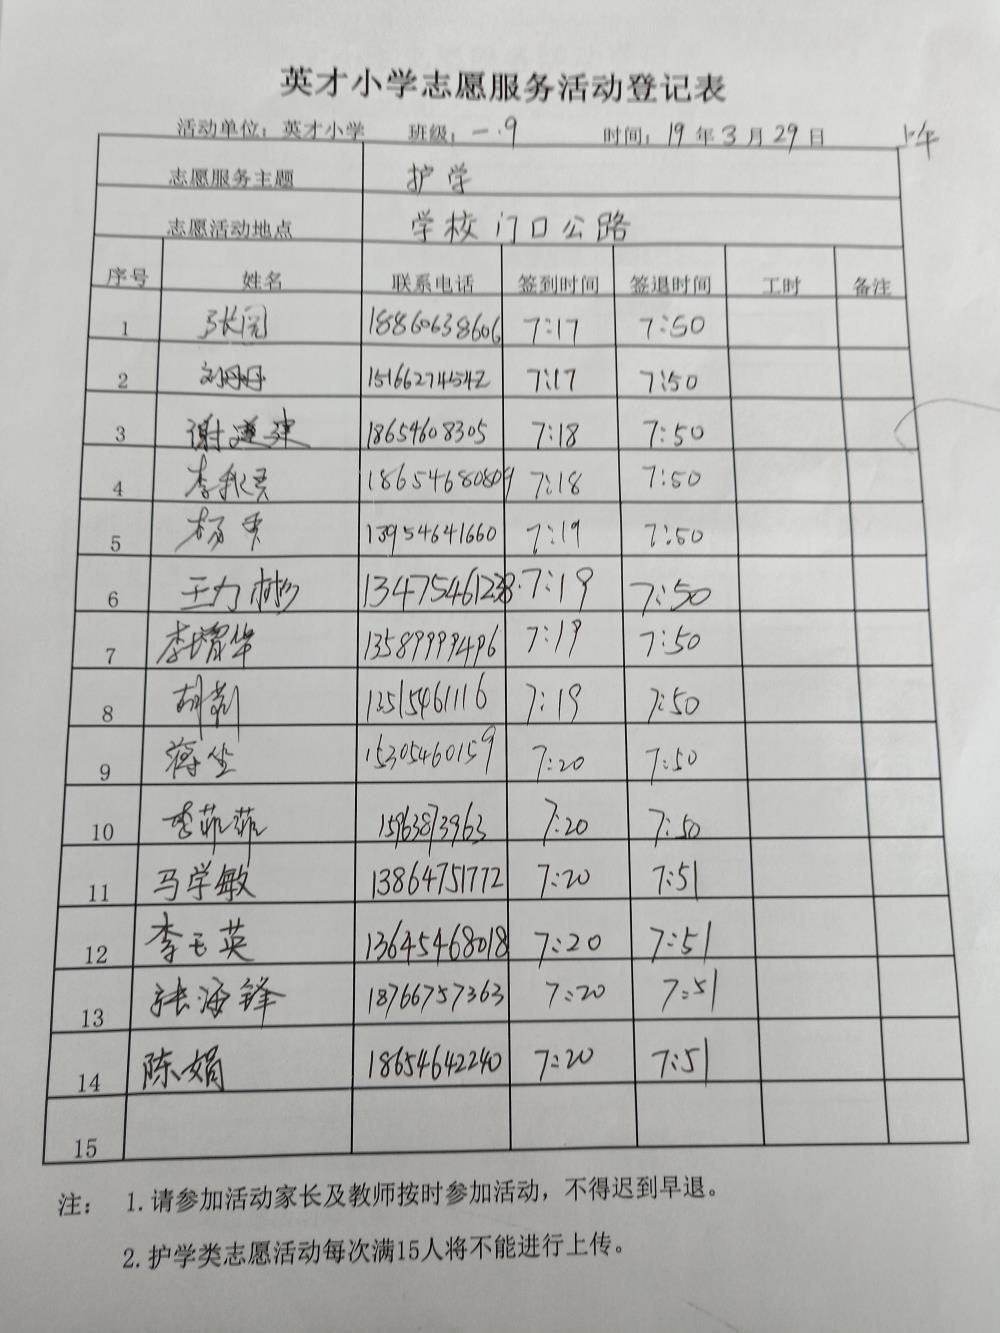 英才小学志愿服务活动登记表
活动单位：英才小学 班级：一.9 时间：19年3月29日 上午
志愿服务主题 护学
志愿活动地点 学校门口公路
序号 姓名 联系电话 签到时间 签退时间 工时 备注
1 张阔 18860638606 7:17 7:50
2 刘丹丹 15166274542 7:17 7:50
3 谢建 18654608305 7:18 7:50
4 李秋 7:18 7:50
5 杨 13954641660 7:19 7:50
6 王力彬 7:19 7:50
7 李增华 13589999496 7:19 7:50
8 胡莉 13515461116 7:19 7:50
9 蒋 15305460159 7:20 7:50
10 李菲菲 15963873963 7:20 7:50
11 马学敏 13864751772 7:20 7:51
12 李玉英 13645468018 7:20 7:51
13 张海锋 18766757363 7:20 7:51
14 陈娟 18654642240 7:20 7:51
15
注： 1.请参加活动家长及教师按时参加活动，不得迟到早退。
2.护学类志愿活动每次满15人将不能进行上传。